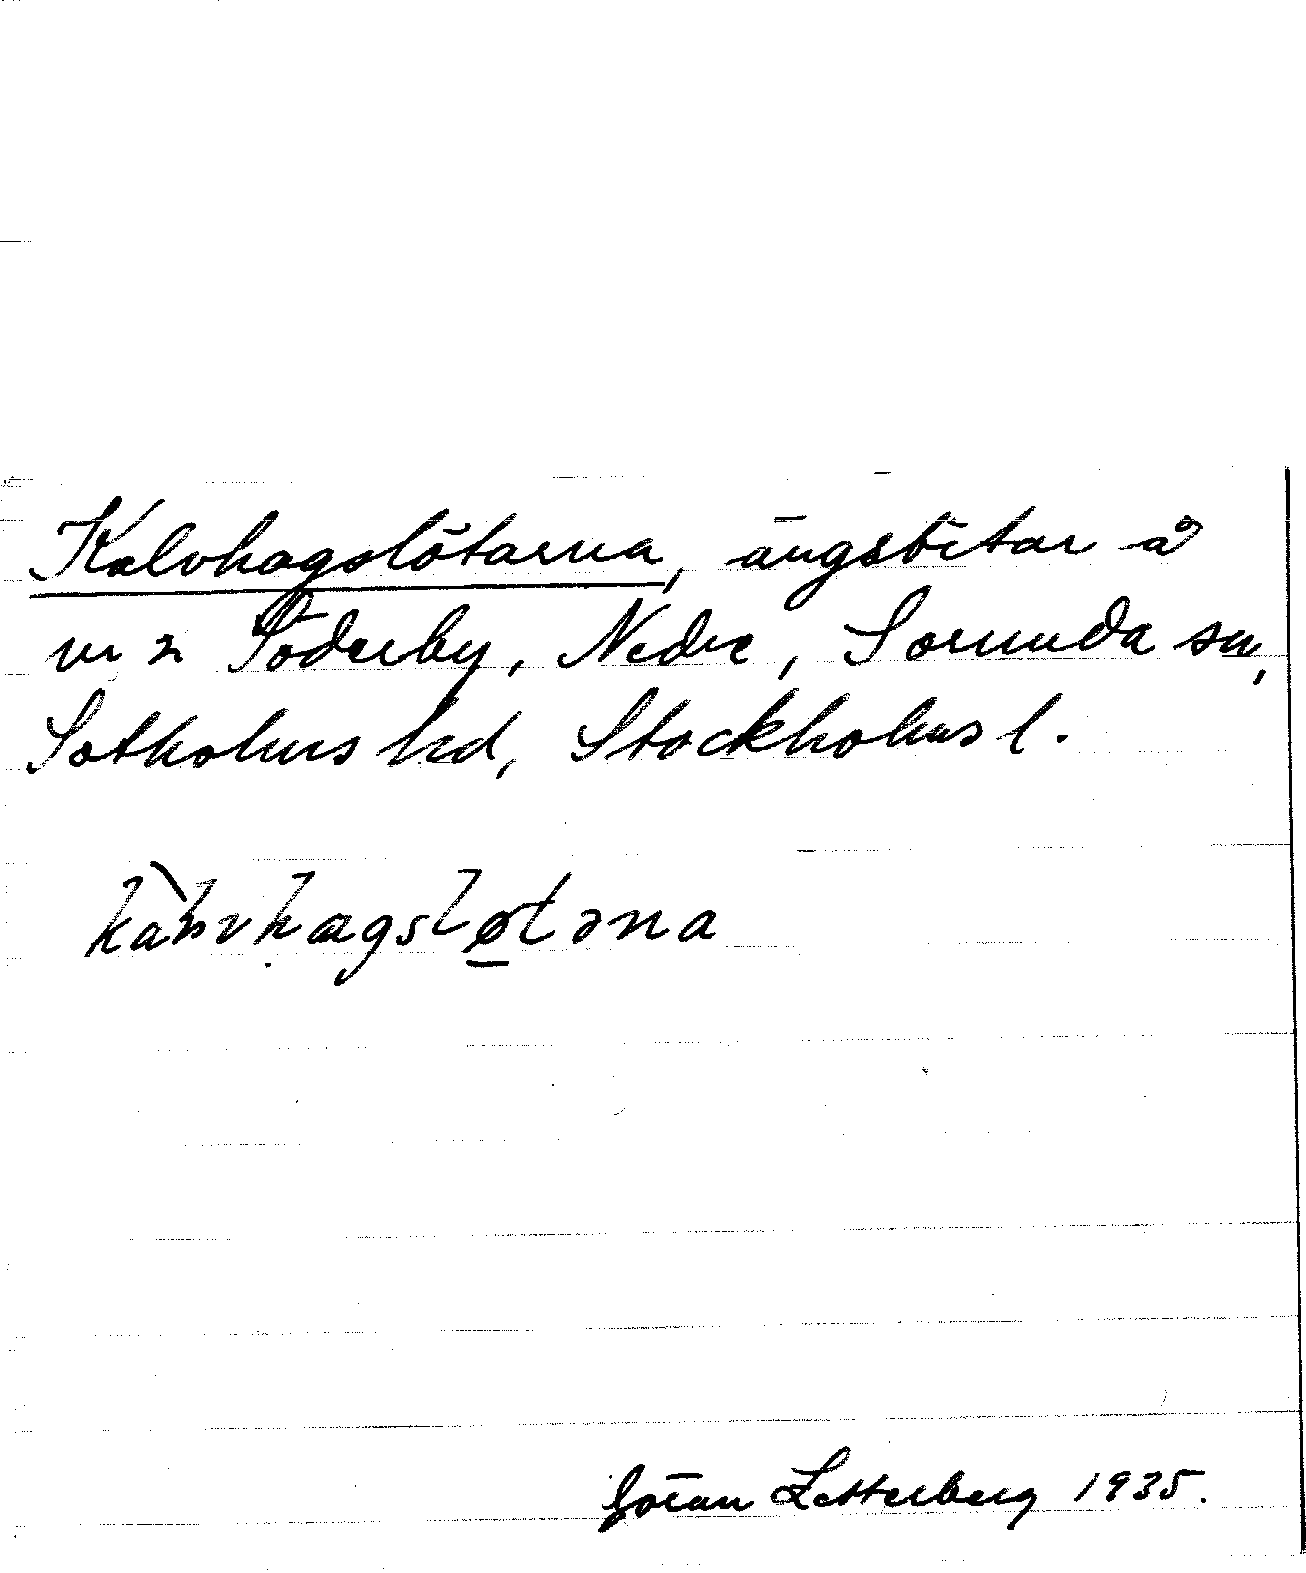 Kalvhagslötarna, ängsbitar å
nr 2 Söderby, Nedre, Sorunda sn,
Sotholms hd, Stockholms l.
Göran Zetterberg 1935.